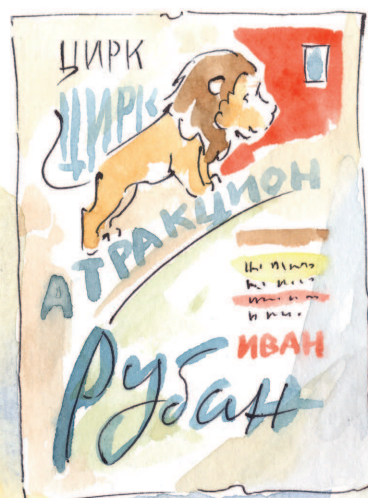 ЦИРК
ЦИРК
АТРАКЦИОН
ИВАН
Рубан